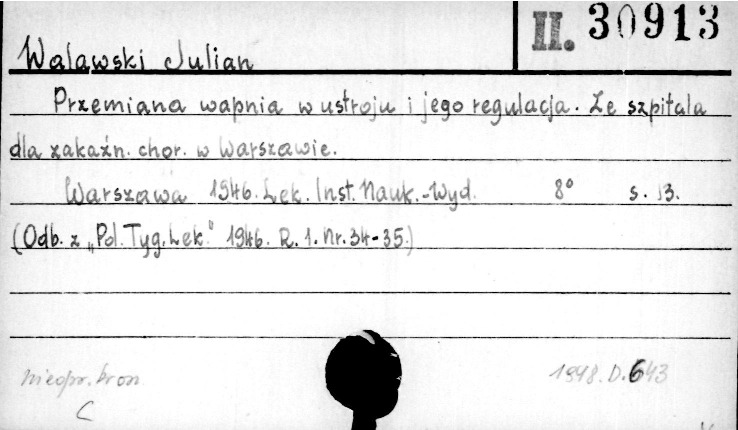 II. 30913
Walawski Julian
Przemiana wapnia w ustroju i jego regulacja. Ze szpitala
dla zakaźn. chor. w Warszawie.
Warszawa 1946. Lek. Inst. Nauk.-Wyd. 8° s. 13.
(Odb. z „Pol. Tyg. Lek." 1946. R. 1. Nr. 34-35.)
nieopr. bron
1948. D. 643
C